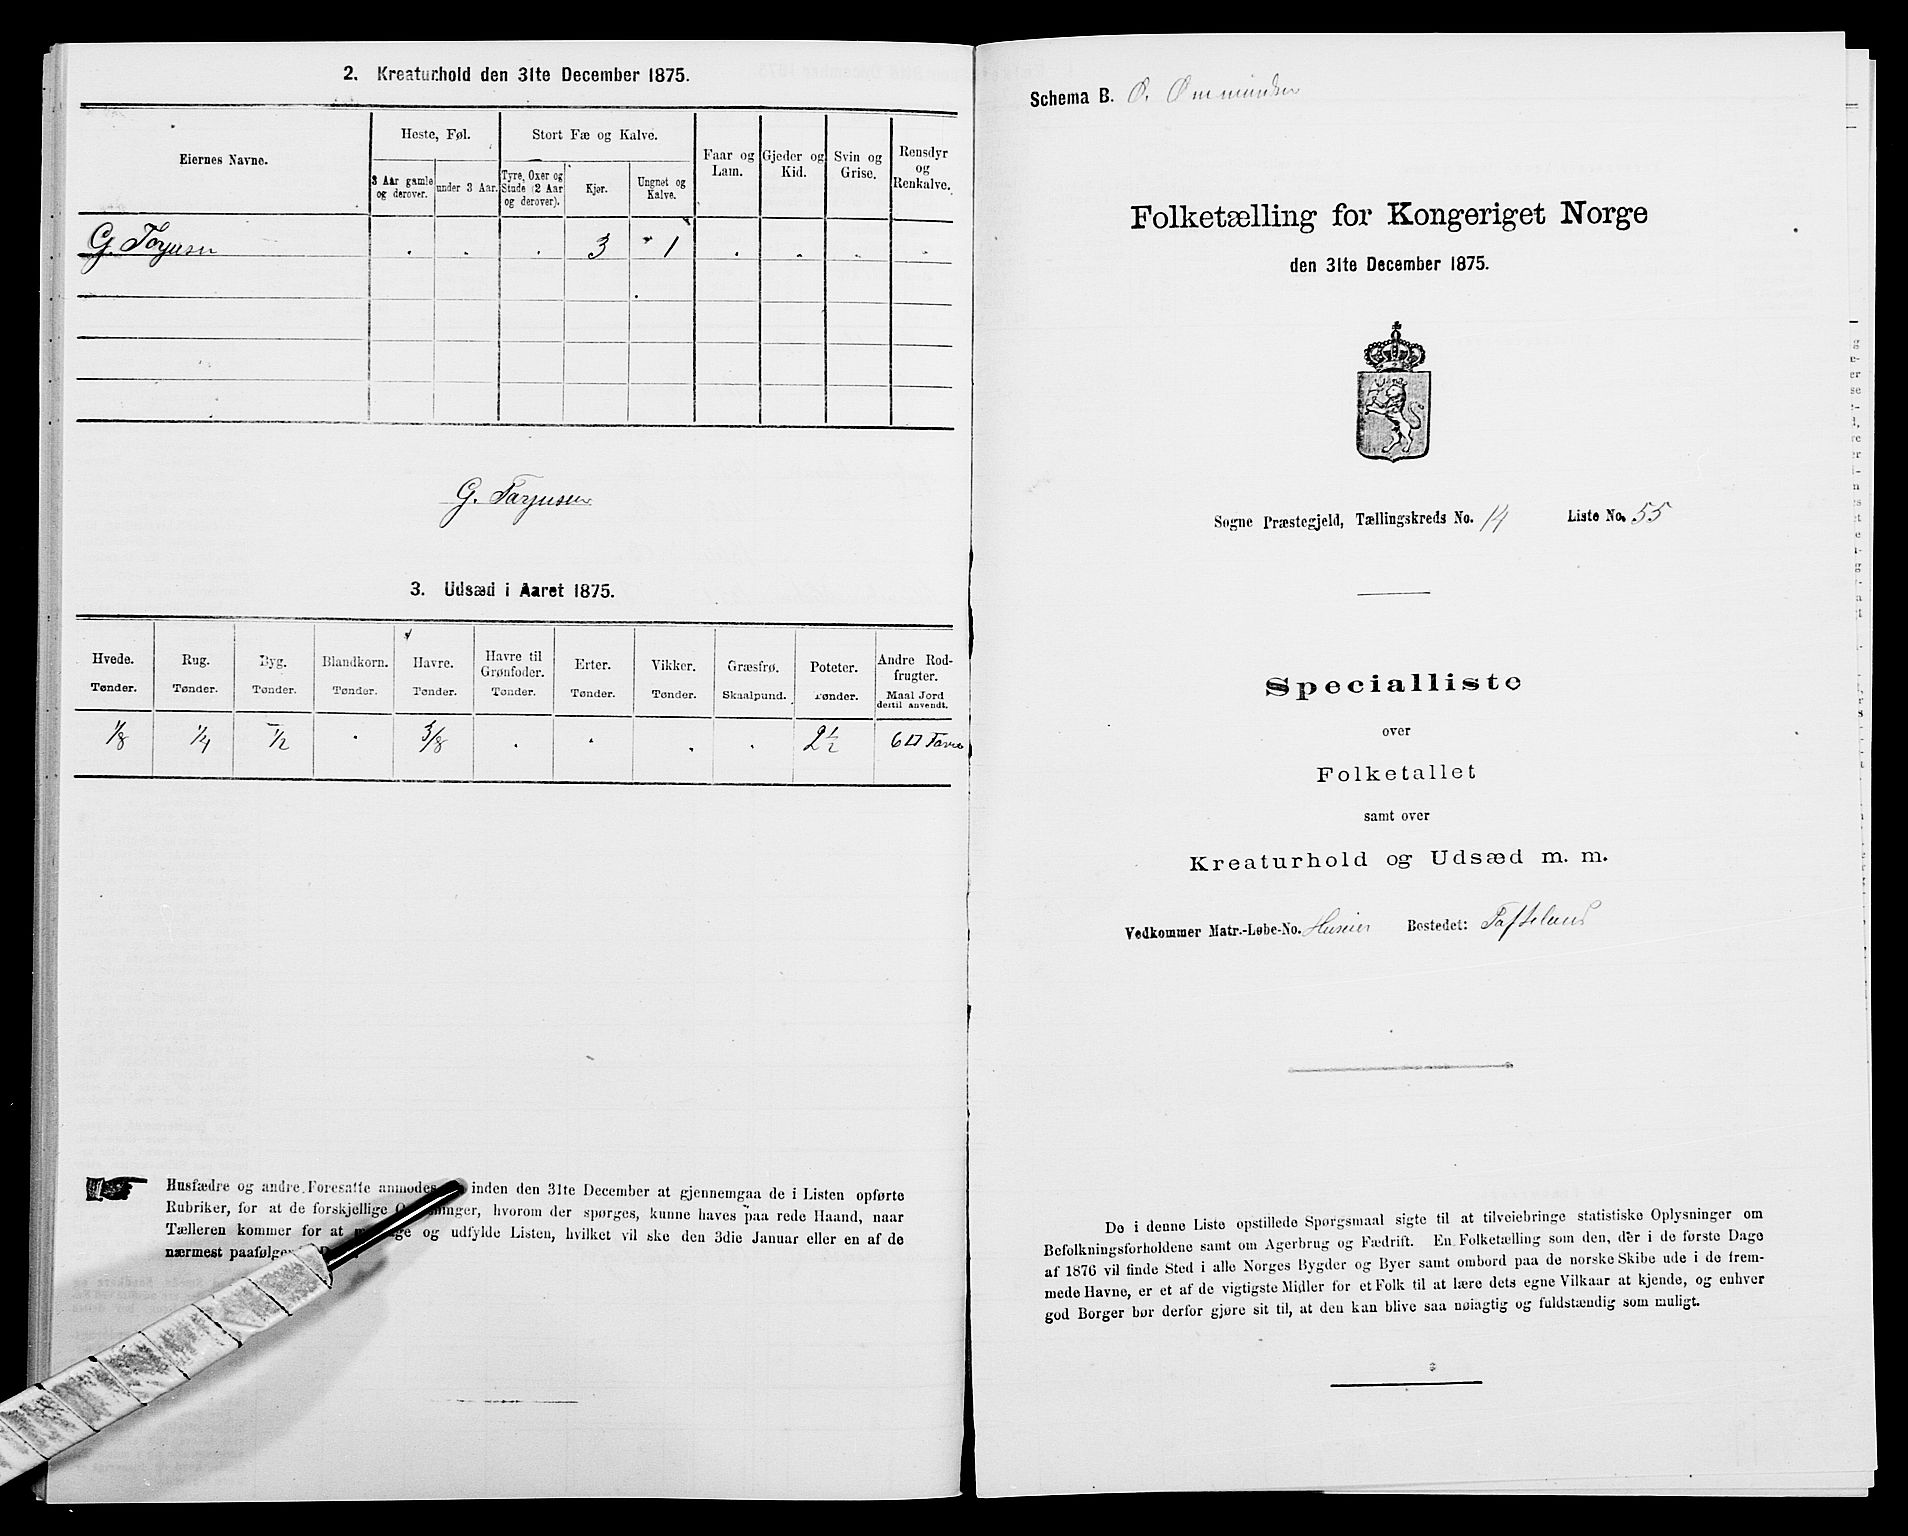 2. Kreaturhold den 31te December 1875.
Eiernes Navne.
Heste, Føl.
Stort Fæ og Kalve.
Faar og Lam.
Gjeder og Kid.
Svin og Grise.
Rensdyr og Renkalve.
3 Aar gamle og derover.
under 3 Aar.
Tyre, Oxer og Stude (2 Aar og derover).
Kjør.
Ungnet og Kalve.
G. Torjusen . . . 3 1 . . . .
G. Torjusen
3. Udsæd i Aaret 1875.
Hvede. Rug. Byg. Blandkorn. Havre. Havre til Grønfoder. Erter. Vikker. Græsfrø. Poteter. Andre Rodfrugter.
Tønder. Tønder. Tønder. Tønder. Tønder. Tønder. Tønder. Tønder. Skaalpund. Tønder. Maal Jord dertil anvendt.
1/8 1/4 1/2 . 3/8 . . . . 2 1/2 6 □ Favne
Husfædre og andre Foresatte anmodes inden den 31te December at gjennemgaa de i Listen opførte
Rubriker, for at de forskjellige hvorom der spørges, kunne haves paa rede Haand, naar
Tælleren kommer for at og udfylde Listen, hvilket vil ske den 3die Januar eller en af de
nærmest paafølgende
Schema B. O. Ommundsen
Folketælling for Kongeriget Norge
den 31te December 1875.
Sogne Præstegjeld, Tællingskreds No. 14 Liste No. 55
Specialliste
over
Folketallet
samt over
Kreaturhold og Udsæd m. m.
Vedkommer Matr.-Løbe-No. Huseier Bostedet: Tofteland
De i denne Liste opstillede Spørgsmaal sigte til at tilveiebringe statistiske Oplysninger om
Befolkningsforholdene samt om Agerbrug og Fædrift. En Folketælling som den, der i de første Dage
af 1876 vil finde Sted i alle Norges Bygder og Byer samt ombord paa de norske Skibe ude i de frem-
mede Havne, er et af de vigtigste Midler for et Folk til at lære dets egne Vilkaar at kjende, og enhver
god Borger bør derfor gjøre sit til, at den kan blive saa nøiagtig og fuldstændig som muligt.